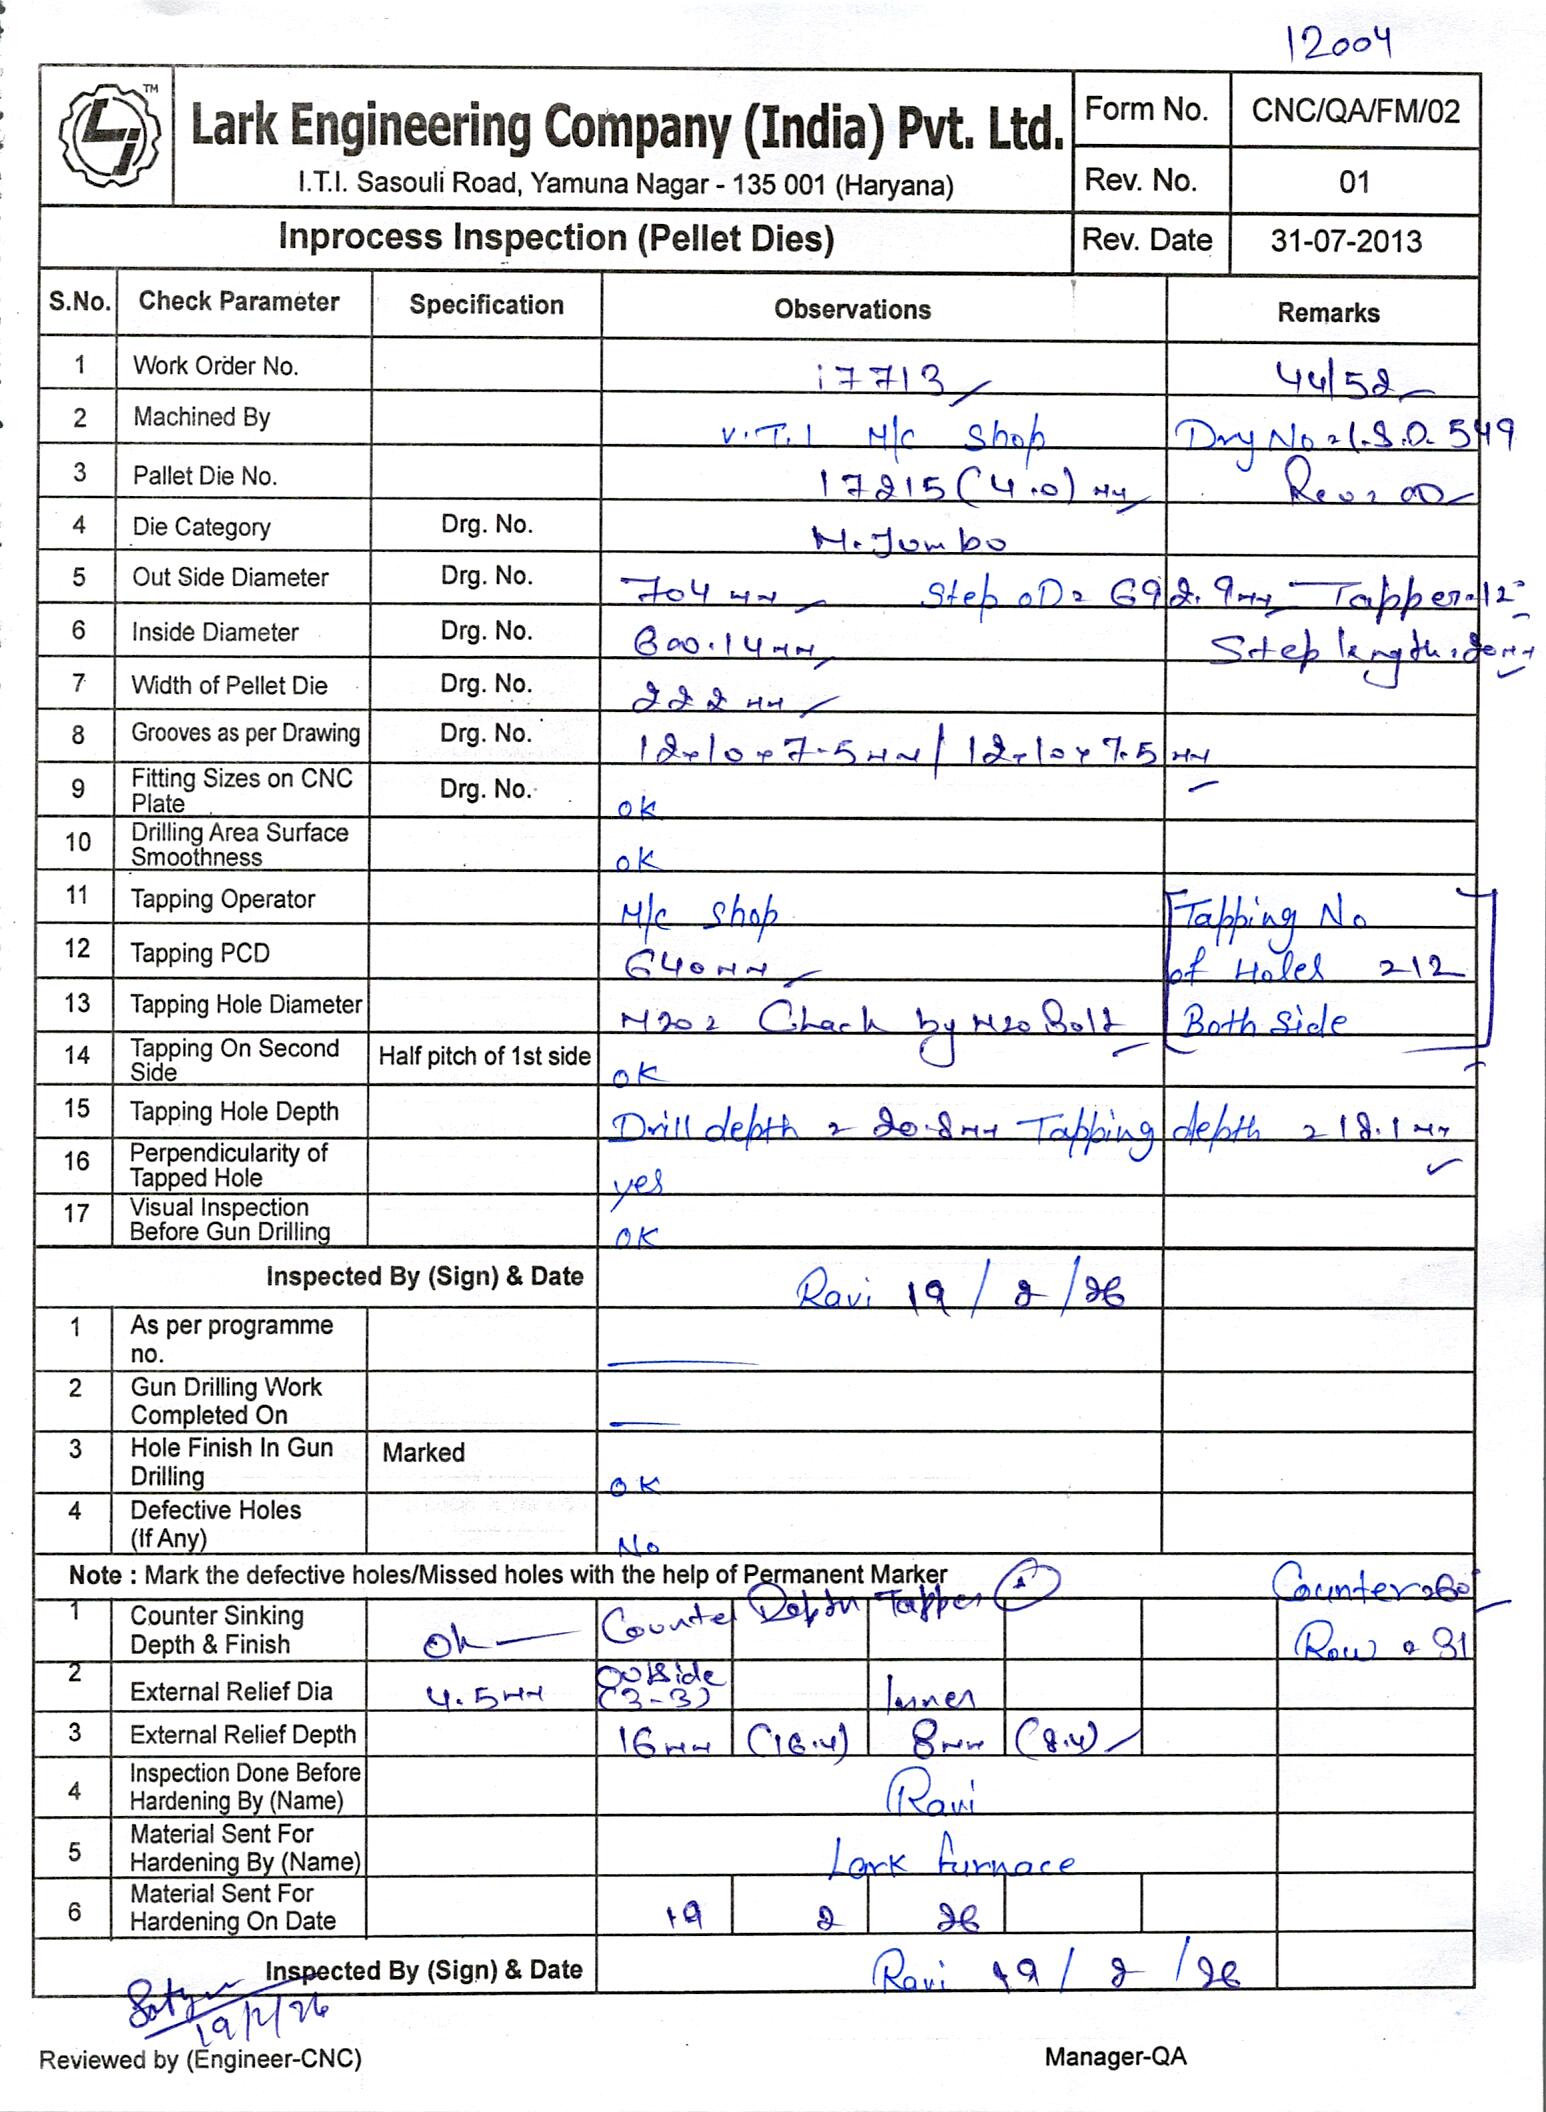 12004
TM
Lark Engineering Company (India) Pvt. Ltd.
I.T.I. Sasouli Road, Yamuna Nagar - 135 001 (Haryana)
Form No. CNC/QA/FM/02
Rev. No. 01
Inprocess Inspection (Pellet Dies)
Rev. Date 31-07-2013
S.No. Check Parameter Specification Observations Remarks
1 Work Order No. 17713 44/52
2 Machined By V.T.L M/c Shop Drg No = L.S.D. 549
3 Pallet Die No. 17215 (4.0) mm Rev = 00
4 Die Category Drg. No. M. Jumbo
5 Out Side Diameter Drg. No. 704 mm Step OD = 692.9 mm Tapper = 12°
6 Inside Diameter Drg. No. 600.14 mm Step length = 20 mm
7 Width of Pellet Die Drg. No. 222 mm
8 Grooves as per Drawing Drg. No. 12x10x7.5 mm / 12x10x7.5 mm
9 Fitting Sizes on CNC Plate Drg. No. ok
10 Drilling Area Surface Smoothness ok
11 Tapping Operator M/c Shop Tapping No
12 Tapping PCD 640 mm of Holes = 12
13 Tapping Hole Diameter M20 = Chack by M20 Bolt Both Side
14 Tapping On Second Side Half pitch of 1st side ok
15 Tapping Hole Depth Drill depth = 20.8 mm Tapping depth = 18.1 mm
16 Perpendicularity of Tapped Hole yes
17 Visual Inspection Before Gun Drilling OK
Inspected By (Sign) & Date Ravi 19/2/26
1 As per programme no.
2 Gun Drilling Work Completed On
3 Hole Finish In Gun Drilling Marked OK
4 Defective Holes (If Any) No
Note : Mark the defective holes/Missed holes with the help of Permanent Marker Counter = 60°
1 Counter Sinking Depth & Finish Ok Counter Depth Tapper Row = 31
2 External Relief Dia 4.5 mm Outside (3-3) Inner
3 External Relief Depth 16 mm (16.4) 8 mm (8.4)
4 Inspection Done Before Hardening By (Name) Ravi
5 Material Sent For Hardening By (Name) Lark furnace
6 Material Sent For Hardening On Date 19 2 26
Inspected By (Sign) & Date Ravi 19/2/26
19/2/26
Reviewed by (Engineer-CNC) Manager-QA